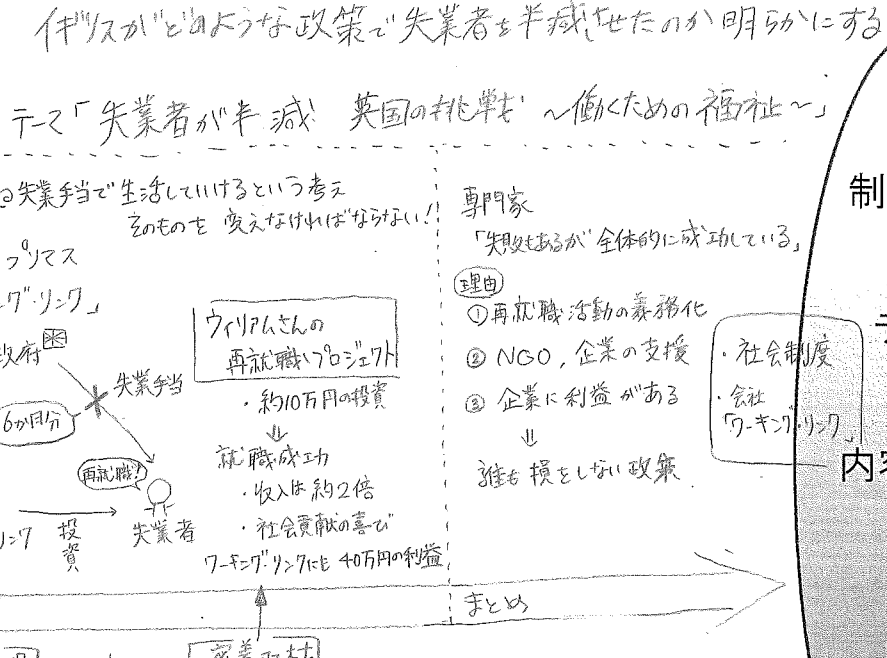 イギリスがどのような政策で失業者を半減させたのか明らかにする
テーマ「失業者が半減 英国の挑戦 ～働くための福祉～」
失業手当で生活していけるという考え
そのものを変えなければならない!
プリマス
グ・リンク」
政府
失業手当
6か月分
再就職!
失業者
リンク
投資
ウィリアムさんの
再就職プロジェクト
・約10万円の投資
⇓
就職成功
・収入は約2倍
・社会貢献の喜び
ワーキング・リンクにも40万円の利益
専門家
「失敗もあるが全体的に成功している」
理由
①再就職活動の義務化
②NGO、企業の支援
③企業に利益がある
⇓
誰も損をしない政策
・社会制度
・会社
「ワーキング・リンク」
まとめ
制
内容